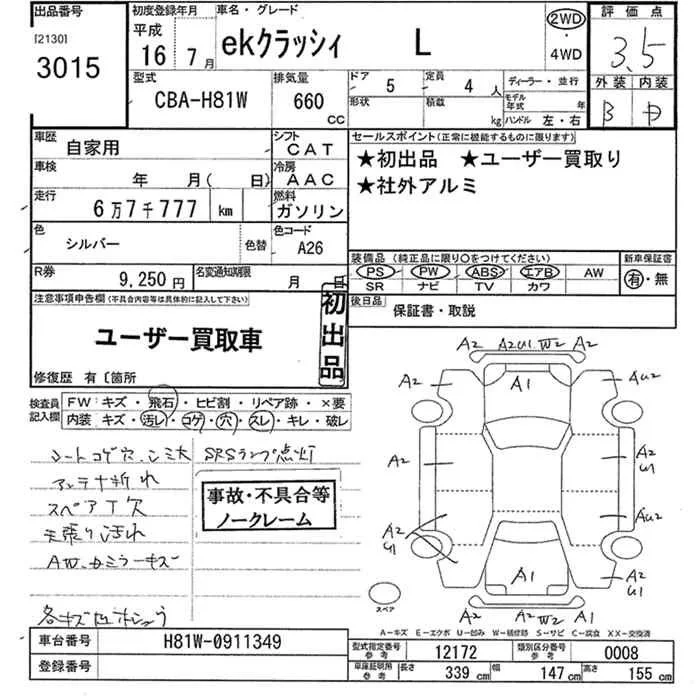 出品番号
[2130]
3015
初度登録年月
平成
16年 7月
車名・グレード
ekクラッシィ L
2WD
・
4WD
評価点
3.5
外装 内装
B 中
型式
CBA-H81W
排気量
660 CC
ドア 5
定員 4人
形状
積載 kg
ディーラー・並行
モデル年式 年
ハンドル 左・右
車歴 自家用
シフト CAT
車検 年 月( 日)
冷房 AAC
走行 6万7千777 km
燃料 ガソリン
色 シルバー 色替
色コード A26
R券 9,250円
名変通知期限 月 日
セールスポイント(正常に機能するものに限ります)
★初出品 ★ユーザー買取り
★社外アルミ
装備品(純正品に限り○をつけてください)
PS PW ABS エアB AW
SR ナビ TV カワ
新車保証書
有・無
後日品 保証書・取説
注意事項申告欄(不具合内容等は具体的に記入して下さい)
ユーザー買取車
初出品
修復歴 有〔箇所
検査員記入欄
FW:キズ・飛石・ヒビ割・リペア跡・×要
内装:キズ・汚レ・コゲ・穴・スレ・キレ・破レ
シートコゲ穴、シミ大 SRSランプ点灯
アンテナ折れ
スペアT欠
天張り汚れ
事故・不具合等
ノークレーム
A2 A2U1 W2 A2
A2 A1 AU2
A2 A2 U1
A2 U1 AU2
A1 A2 U1
A2 A2 W2 A1
スペア
A-キズ E-エクボ U-凹み W-補修跡 S-サビ C-腐食 XX-交換済
車台番号 H81W-0911349
登録番号
型式指定番号 参考 12172
類別区分番号 参考 0008
車庫証明用 参考 長さ 339cm 幅 147cm 高さ 155cm